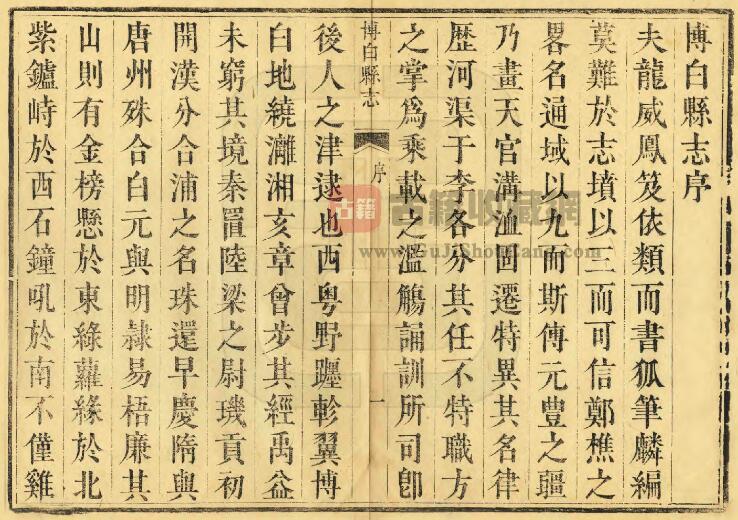 博白縣志序
夫龍威鳳笈依類而書狐筆麟編
莫難於志墳以三而可信鄭樵之
畧名通域以九而斯傳元豐之疆
乃畫天官溝洫固遷特異其名律
歷河渠于李各分其任不特職方
之掌爲乘載之濫觴誦訓所司卽
博白縣志
序
一
後人之津逮也西粵野躔軫翼博
白地繞灕湘亥章曾步其經禹益
未窮其境秦置陸梁之尉璣貢初
開漢分合浦之名珠還早慶隋與
唐州殊合白元與明隸易梧廉其
山則有金榜懸於東綠蘿緣於北
紫鑪峙於西石鐘吼於南不僅雞
古籍
古籍收藏網
www.GuJiShouCang.com